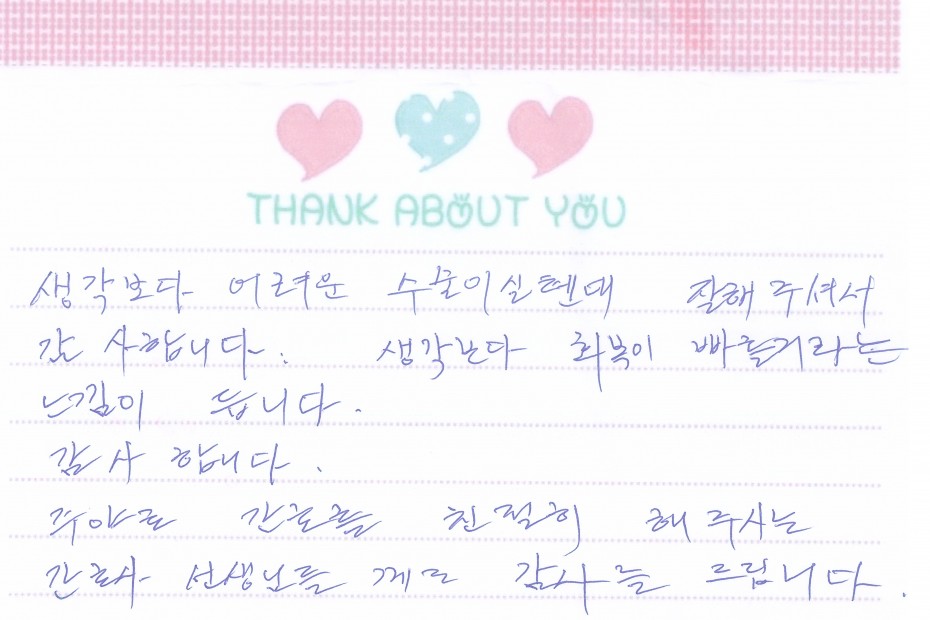 THANK ABOUT YOU
생각보다 어려운 수술이실텐데 잘해 주셔서
감사합니다. 생각보다 회복이 빠를거라는
느낌이 듭니다.
감사 합니다.
주야로 간호를 친절히 해 주시는
간호사 선생님들 께도 감사를 드립니다.